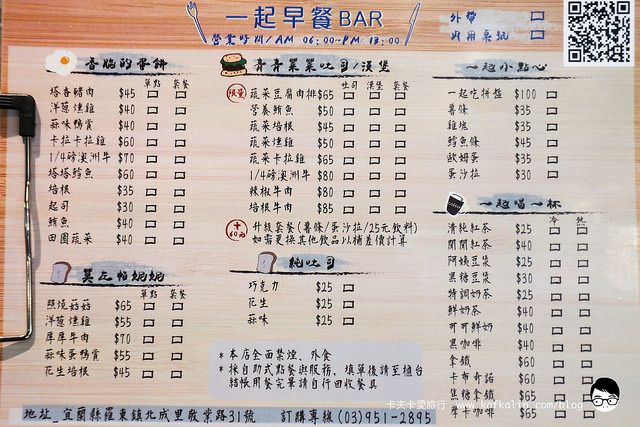 一起早餐BAR
營業時間/AM 06:00~PM 13:00
外帶
內用桌號
香脆的蛋餅
單點 套餐
塔香豬肉 $45
洋蔥燻雞 $40
蒜味鴨賞 $40
卡拉卡拉雞 $60
1/4磅澳洲牛 $70
塔塔鱈魚 $60
培根 $35
起司 $30
鮪魚 $40
田園蔬菜 $40
單點 套餐
照燒菇菇 $65
洋蔥燻雞 $55
厚厚牛肉 $70
蒜味蛋鴨賞 $55
花生培根 $45
青青菜菜吐司/漢堡
吐司 漢堡 套餐
限量 蔬菜豆腐肉排 $65
營養鮪魚 $50
蔬菜培根 $45
蔬菜燻雞 $50
蔬菜卡拉雞 $65
1/4磅澳洲牛 $80
辣椒牛肉 $80
培根牛肉 $85
+60元 升級套餐(薯條/蛋沙拉/25元飲料)
如需更換其他飲品以補差價計算
純吐司
巧克力 $25
花生 $25
蒜味 $25
*本店全面禁煙、外食
*採自助式點餐與服務，填單後請至櫃台
結帳用餐完畢請自行回收餐具
一起小點心
一起吃拼盤 $100
薯條 $35
雞塊 $35
鱈魚條 $45
歐姆蛋 $35
蛋沙拉 $30
一起喝一杯
冷 熱
清純紅茶 $25
開開紅茶 $40
阿姨豆漿 $25
黑糖豆漿 $30
特調奶茶 $25
鮮奶茶 $40
可可鮮奶 $40
黑咖啡 $40
拿鐵 $60
卡布奇諾 $60
焦糖拿鐵 $65
摩卡咖啡 $65
地址_宜蘭縣羅東鎮北成里敬業路31號 訂購專線(03)951-2895
卡夫卡愛旅行 www.kafkalin.com/blog